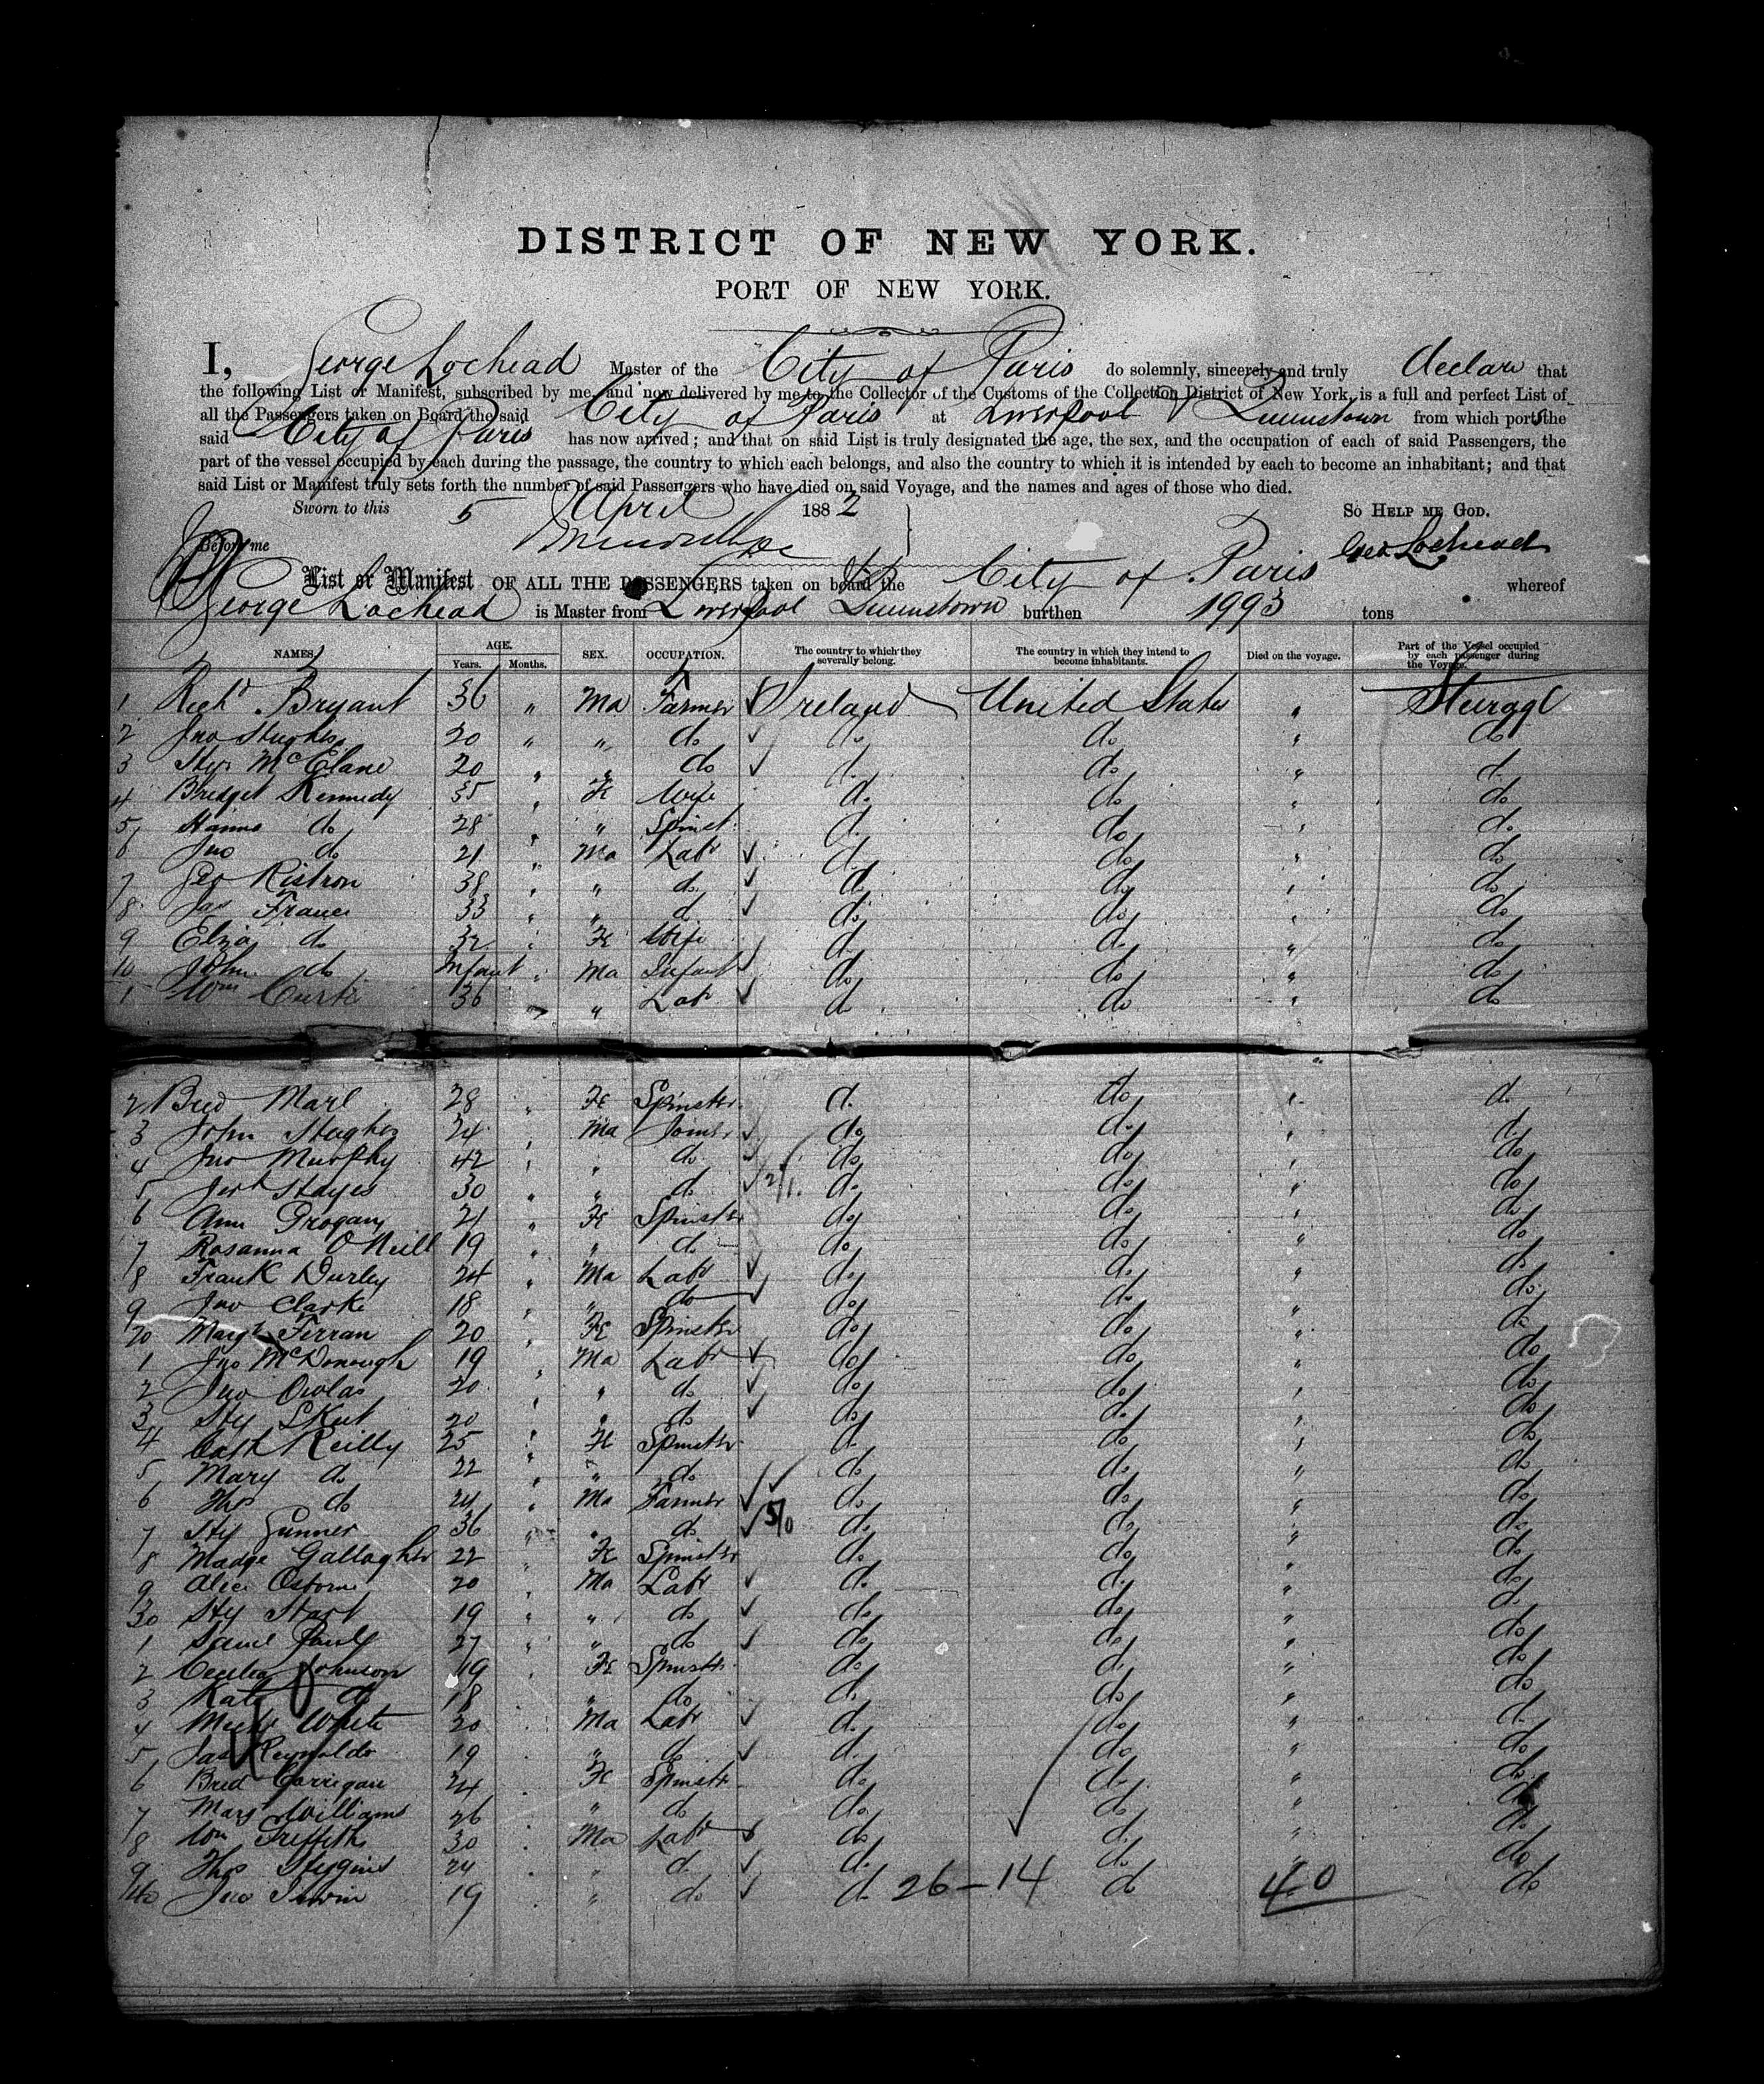 DISTRICT OF NEW YORK.
PORT OF NEW YORK.
I, George Lochead Master of the City of Paris do solemnly, sincerely and truly declare that
the following List or Manifest, subscribed by me, and now delivered by me to the Collector of the Customs of the Collection District of New York, is a full and perfect List of
all the Passengers taken on Board the said City of Paris at Liverpool & Queenstown from which ports the
said City of Paris has now arrived; and that on said List is truly designated the age, the sex, and the occupation of each of said Passengers, the
part of the vessel occupied by each during the passage, the country to which each belongs, and also the country to which it is intended by each to become an inhabitant; and that
said List or Manifest truly sets forth the number of said Passengers who have died on said Voyage, and the names and ages of those who died.
Sworn to this 5 April 1882 So Help me God.
Before me Geo Lochead
List or Manifest OF ALL THE PASSENGERS taken on board the City of Paris whereof
George Lochead is Master from Liverpool Queenstown burthen 1993 tons
NAMES. AGE. Years. Months. SEX. OCCUPATION. The country to which they severally belong. The country in which they intend to become inhabitants. Died on the voyage. Part of the Vessel occupied by each passenger during the Voyage.
1 Richd Bryant 36 " Ma Farmer Ireland United States " Steerage
2 Jno Hughes 20 " " do do do " do
3 Hy McElane 20 " " do do do " do
4 Bridget Kennedy 35 " Fe Wife do do " do
5 do 28 " " Spinst do do " do
6 Jno do 21 " Ma Labr do do " do
7 Geo Ristron 38 " " do do do " do
8 Jas France 33 " " do do do " do
9 Eliza do 32 " Fe Wife do do " do
10 John do Infant " Ma Infant do do " do
1 Wm 36 " " Labr do do " do
2 Brid Marl 28 " Fe Spinster do do " do
3 John Hughes 24 " Ma Joiner do do " do
4 Jno Murphy 42 " " do do do " do
5 Jerh Hayes 30 " " do do do " do
6 Ann Grogan 21 " Fe Spinster do do " do
7 Rosanna O'Neill 19 " " do do do " do
8 Frank Durley 24 " Ma Labr do do " do
9 Jno Clarke 18 " " do do do " do
20 Margt Ferran 20 " Fe Spinster do do " do
1 Jno McDonough 19 " Ma Labr do do " do
2 Jno 20 " " do do do " do
3 Hy 20 " " do do do " do
4 Cath Reilly 25 " Fe Spinster do do " do
5 Mary do 22 " " do do do " do
6 Thos do 24 " Ma Farmer do do " do
7 Hy Gunner 36 " " do do do " do
8 Madge Gallagher 22 " Fe Spinster do do " do
9 Alec Osborne 20 " Ma Labr do do " do
30 Hy Hart 19 " " do do do " do
1 Saml 27 " " do do do " do
2 Cecelia Johnson 19 " Fe Spinster do do " do
3 Kate do 18 " " do do do " do
4 Michl White 20 " Ma Labr do do " do
5 Jas Reynolds 19 " " do do do " do
6 Brid Carrigan 24 " Fe Spinster do do " do
7 Margt Williams 26 " " do do do " do
8 Wm Griffiths 30 " Ma Labr do do " do
9 Thos Higgins 24 " " do do do " do
40 Jno Irwin 19 " " do do 26 - 14 do 40 do